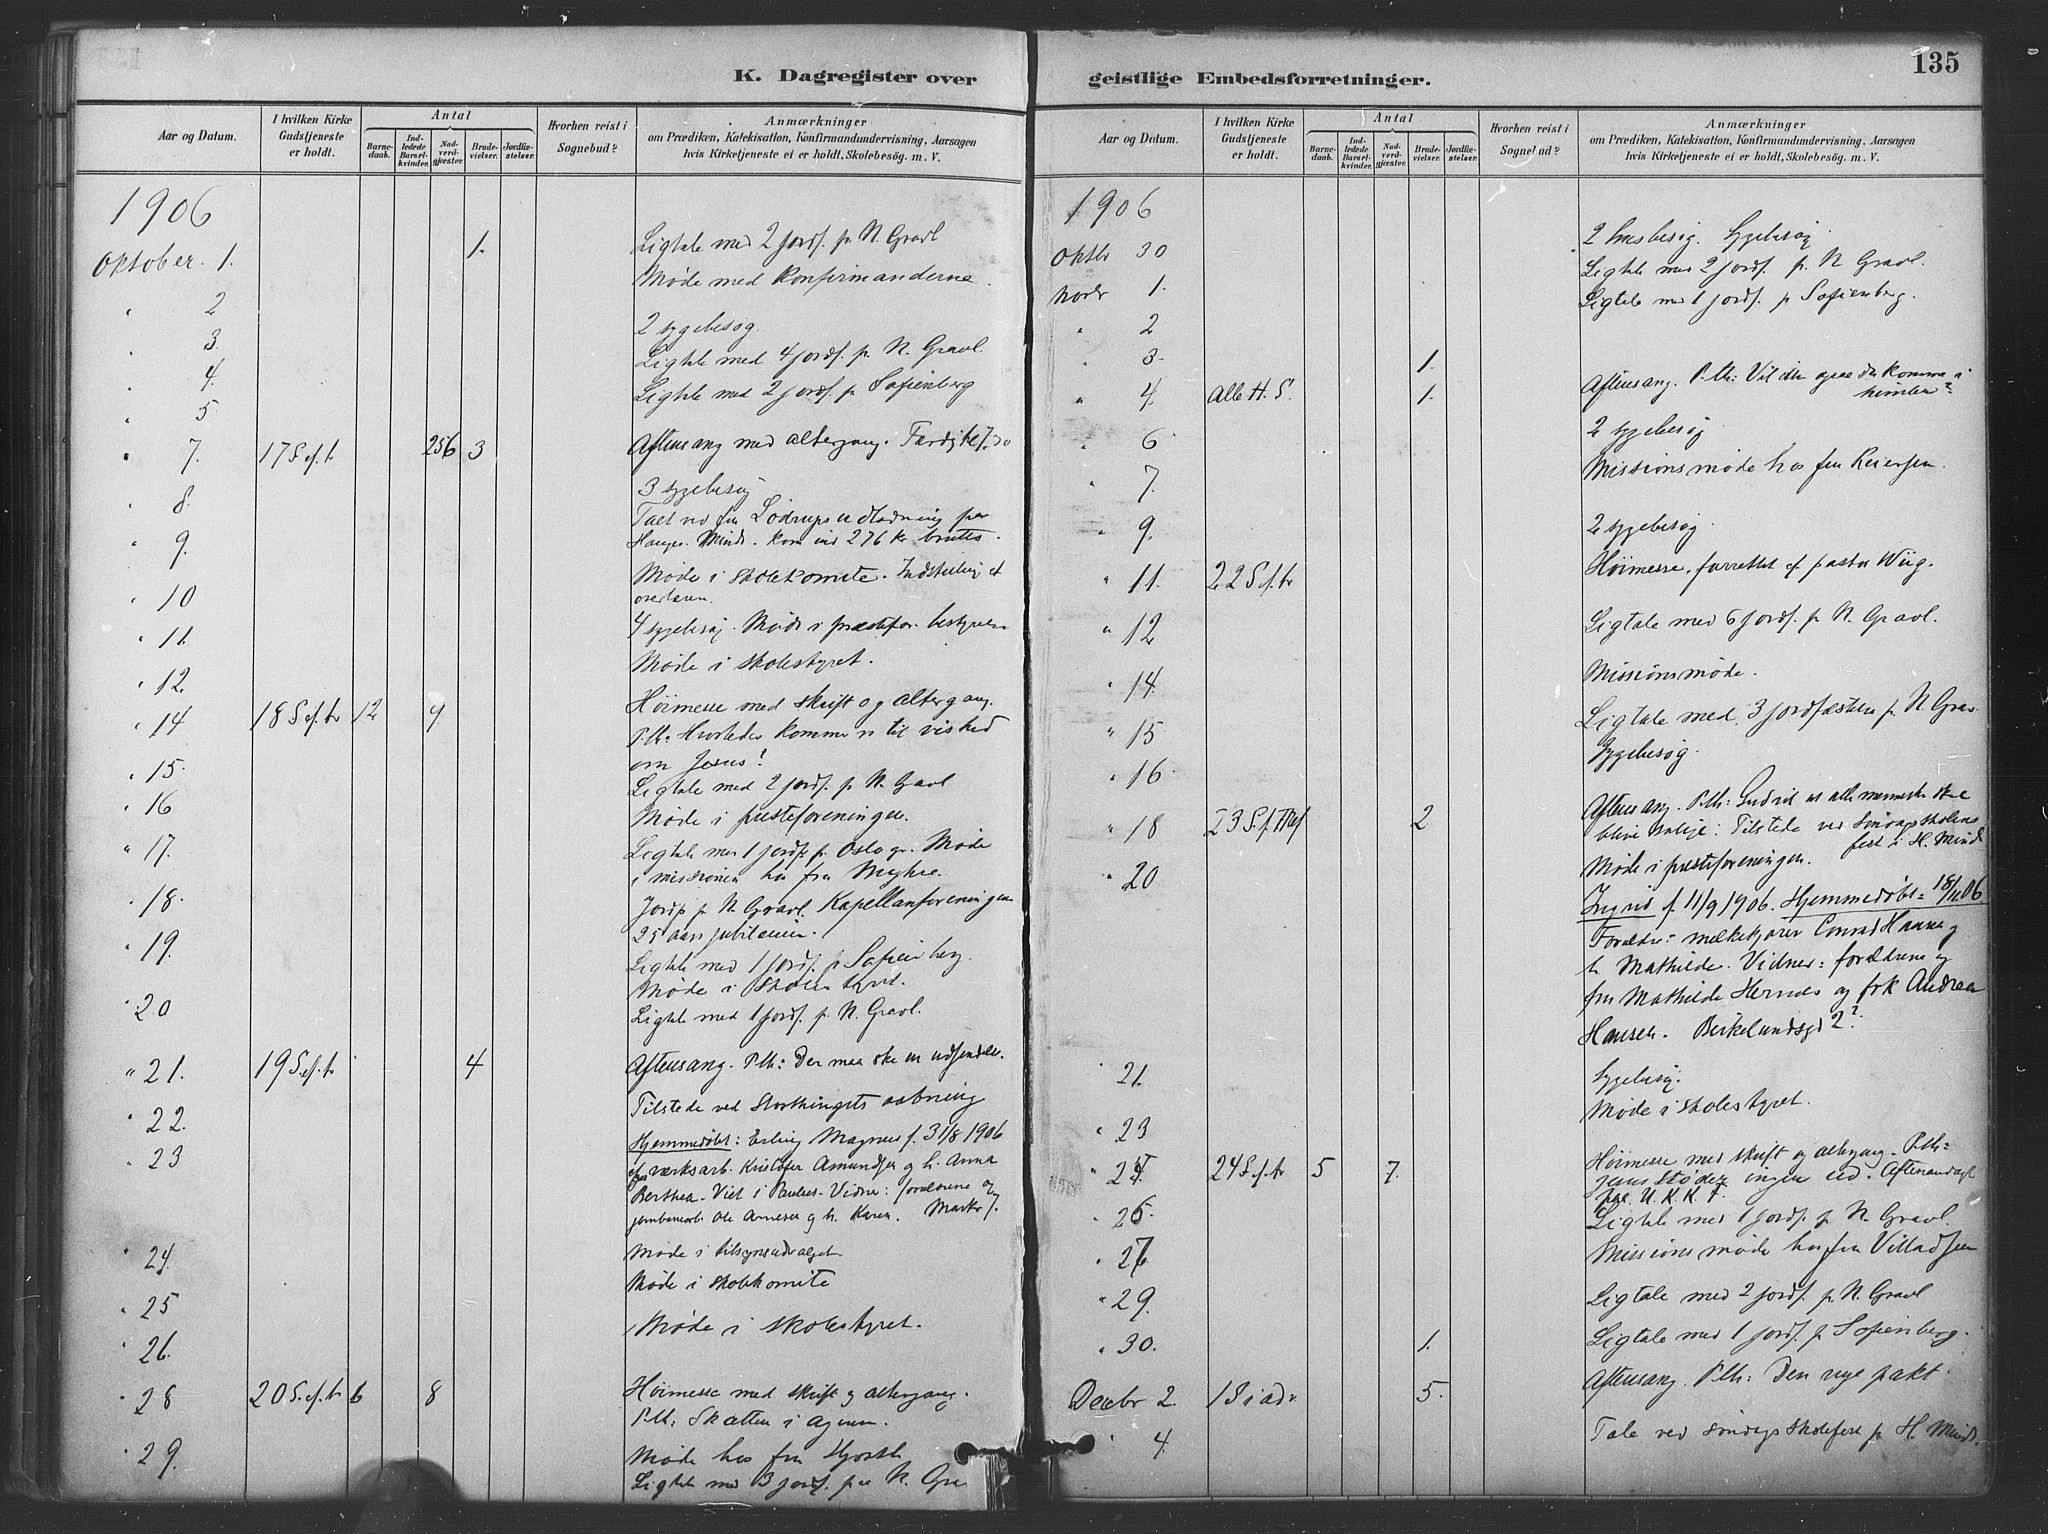 K. Dagregister over
Aar og Datum.
I hvilken Kirke Gudstjeneste er holdt.
Antal
Barnedaab.
Indledede Barselkvinder.
Nadverdgjester.
Brudevielser.
Jordfæstelser.
Hvorhen reist i Sognebud?
Anmærkninger
om Prædiken, Katekisation, Konfirmandundervisning, Aarsagen
hvis Kirketjeneste ei er holdt, Skolebesög. m. V.
1906
Oktober. 1. 1. Ligtale med 2 jordf. p. N. Gravl
Møde med konfirmanderne.
" 2 2 sygebesøg.
" 3. Ligtale med 4 jordf. p. N. Gravl.
" 4. Ligtale med 2 jordf. p Sofienberg
" 5
" 7. 17 S. ef. tr 256 3 Aftensang med altergang. Færdig kl 7.30
" 8. 3 sygebesøg
" 9. Talt ved fru Lødrups udlodning paa
Hauges Minde. kom ind 276 kr brutto.
" 10 Møde i skolekomite. Indstilling af
overlærer.
" 11. 4 sygebesøg. Møde i præstefor. bestyrelse
" 12. Møde i skolestyret.
" 14 18 S. ef. tr 12 9 Høimesse med skrift og altergang.
P.th: Hvorledes komme vi til vished
om Jesus?
" 15. Ligtale med 2 jordf. p N. Gravl
" 16 Møde i presteforeningen.
" 17. Ligtale med 1 jordf. p. Oslo gr. Møde
i missionen hos fru Myhre.
" 18. Jordf. p N. Gravl. Kapellanforeningens
25 aars jubilæum.
" 19. Ligtale med 1 jordf. p Sofienberg.
Møde i Skolestyret.
" 20 Ligtale med 1 jordf. p N. Gravl.
" 21. 19 S. ef. tr 4 Aftensang. P.th: Der maa ske en udsendelse.
" 22. Tilstede ved Storthingets aabning
" 23 Hjemmedøbt: Erling Magnus f. 31/8 1906
af værksarb. Kristofer Amundsen og h. Anna
Berthea. Viet i Paulus. Vidner: forældrene og
jernbanearb. Ole Arnesen og h. Karen.
" 24. Møde i tilsynsudvalget.
" 25 Møde i skolekomite
" 26. Møde i skolestyret.
" 28 20 S. ef. tr 6 8 Høimesse med skrift og altergang.
P.th: Skatten i ageren.
" 29. Møde hos fru Hjorth
Ligtale med 3 jordf. paa N. Gra
135
geistlige Embedsforretninger.
Aar og Datum.
I hvilken Kirke Gudstjeneste er holdt.
Antal
Barnedaab.
Indledede Barselkvinder.
Nadverdgjester.
Brudevielser.
Jordfæstelser.
Hvorhen reist i Sognebud?
Anmærkninger
om Prædiken, Katekisation, Konfirmandundervisning, Aarsagen
hvis Kirketjeneste ei er holdt, Skolebesög. m. V.
1906
Oktbr 30 2 husbesøg. Sygebesøg
Novbr 1. Ligtale med 2 jordf. p. N Gravl.
" 2 Ligtale med 1 jordf. p Sofienberg.
" 3. 1.
" 4. Alle H. S. 1. Aftensang. P.th: Vil du ogsaa komme i
himlen?
" 6 2 sygebesøg
" 7. Missionsmøde hos fru Reiersen.
" 9. 2 sygebesøg.
" 11. 22 S. ef. tr Høimesse, forrettet af pastor Wiig.
" 12 Ligtale med 6 jordf. p N. Gravl.
" 14. Missionsmøde.
" 15 Ligtale med 3 jordfæstelser p. N Grav
" 16. Sygebesøg.
" 18 23 S. f. Tref 2 Aftensang. P.th: Gud vil at alle mennesker skal
blive salige. Tilstede ved Søndagsskolens
fest i H. Minde
" 20 Møde i presteforeningen.
Ingrid f. 11/9 1906. Hjemmedøbt 18/11 06
Forældre: melkekjører Conrad Hansen og
h. Mathilde. Vidner: forældrene og
fru Mathilde Hernæs og frk Andrea
Hansen. Birkelundsgd 2?
" 21. Sygebesøg.
" 23 Møde i skolestyret.
" 25 24 S. ef. tr 5 7. Høimesse med skrift og altergang. P.th:
Jesus støder ingen ud. Aftenandagt
paa U. K. K. F.
" 26. Ligtale med 1 jordf. p N. Gravl.
" 27. Missionsmøde hos fru Villadsen
" 29. Ligtale med 2 jordf. p. N. Gravl
" 30. 1. Ligtale med 1 jordf. p Sofienberg.
Decbr 2. 1 S i adv 5. Aftensang. P.th: Den nye pakt.
" 4. Tale ved søndagsskolefest p H. Minde.